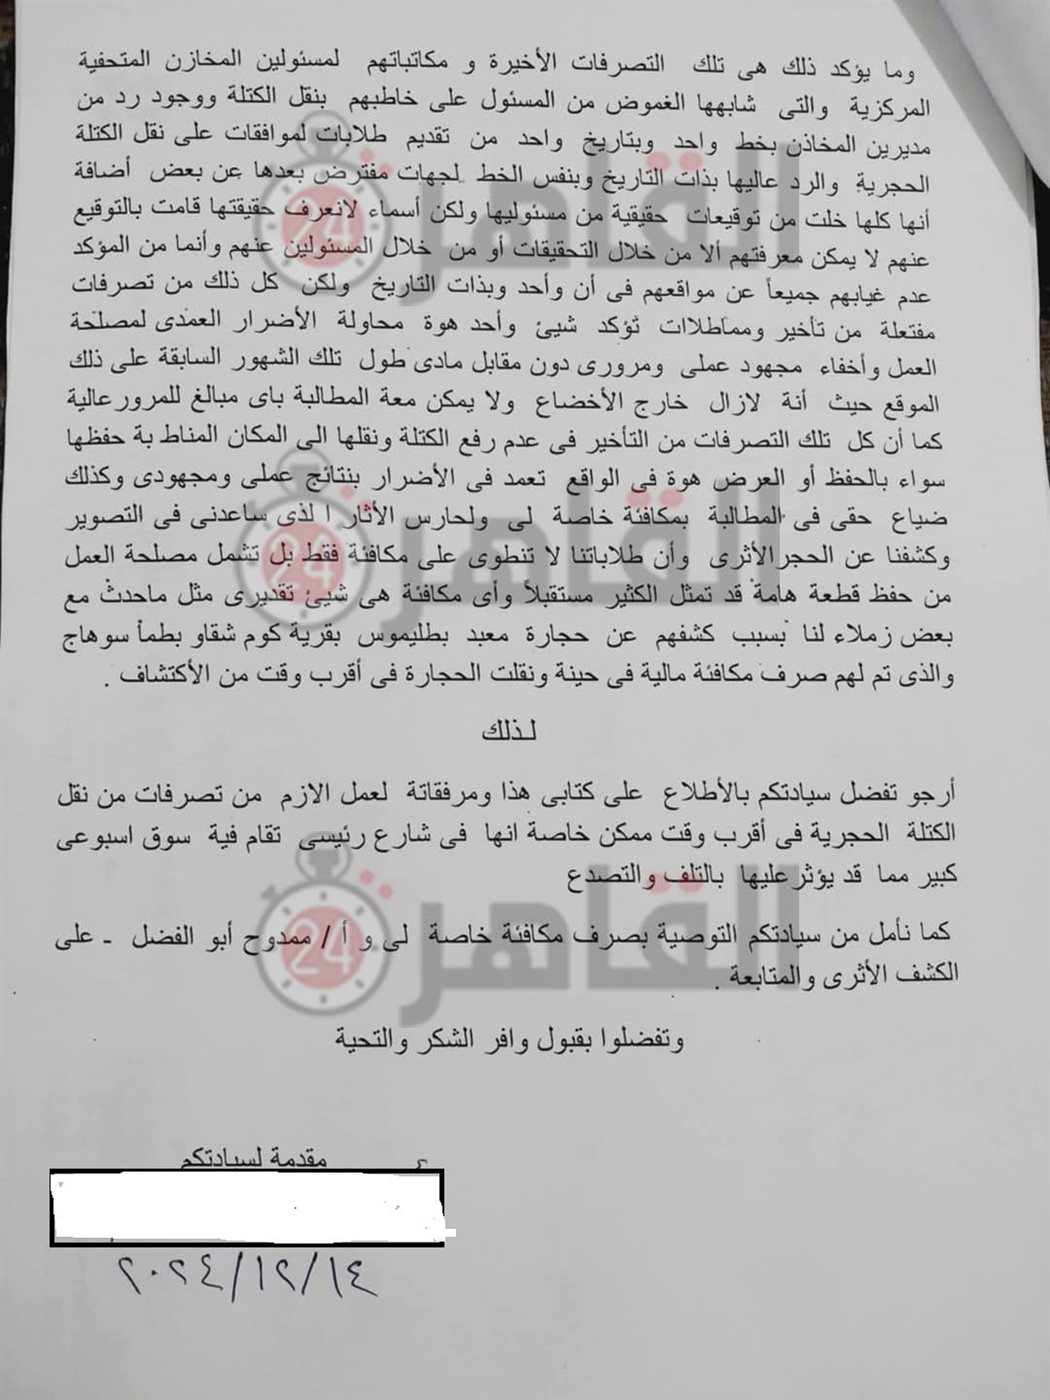 وما يؤكد ذلك هى تلك التصرفات الأخيرة و مكاتباتهم لمسئولين المخازن المتحفية
المركزية والتى شابهها الغموض من المسئول على خاطبهم بنقل الكتلة ووجود رد من
مديرين المخاذن بخط واحد وبتاريخ واحد من تقديم طلابات لموافقات على نقل الكتلة
الحجرية والرد عاليها بذات التاريخ وبنفس الخط لجهات مفترض بعدها عن بعض أضافة
أنها كلها خلت من توقيعات حقيقية من مسئوليها ولكن أسماء لانعرف حقيقتها قامت بالتوقيع
عنهم لا يمكن معرفتهم ألا من خلال التحقيقات أو من خلال المسئولين عنهم وأنما من المؤكد
عدم غيابهم جميعاً عن مواقعهم فى أن وأحد وبذات التاريخ ولكن كل ذلك من تصرفات
مفتعلة من تأخير ومماطلاات تؤكد شيئ وأحد هوة محاولة الأضرار العمدى لمصلحة
العمل وأخفاء مجهود عملى ومرورى دون مقابل مادى طول تلك الشهور السابقة على ذلك
الموقع حيث أنة لازال خارج الأخضاع ولا يمكن معة المطالبة باى مبالغ للمرور عالية
كما أن كل تلك التصرفات من التأخير فى عدم رفع الكتلة ونقلها الى المكان المناط بة حفظها
سواء بالحفظ أو العرض هوة فى الواقع تعمد فى الأضرار بنتائج عملى ومجهودى وكذلك
ضياع حقى فى المطالبة بمكافئة خاصة لى ولحارس الأثار الذى ساعدنى فى التصوير
وكشفنا عن الحجر الأثرى وأن طلاباتنا لا تنطوى على مكافئة فقط بل تشمل مصلحة العمل
من حفظ قطعة هامة قد تمثل الكثير مستقبلاً وأى مكافئة هى شيئ تقديرى مثل ماحدث مع
بعض زملاء لنا بسبب كشفهم عن حجارة معبد بطليموس بقرية كوم شقاو بطمأ سوهاج
والذى تم لهم صرف مكافئة مالية فى حينة ونقلت الحجارة فى أقرب وقت من الأكتشاف .
لـذلك
أرجو تفضل سيادتكم بالأطلاع على كتابى هذا ومرفقاتة لعمل الازم من تصرفات من نقل
الكتلة الحجرية فى أقرب وقت ممكن خاصة انها فى شارع رئيسى تقام فية سوق اسبوعى
كبير مما قد يؤثر عليها بالتلف والتصدع
كما نأمل من سيادتكم التوصية بصرف مكافئة خاصة لى و أ / ممدوح أبو الفضل - على
الكشف الأثرى والمتابعة .
وتفضلوا بقبول وافر الشكر والتحية
مقدمة لسيادتكم
٢٠٢٤/١٢/١٤
القاهرة 24
القاهرة 24
القاهرة 24